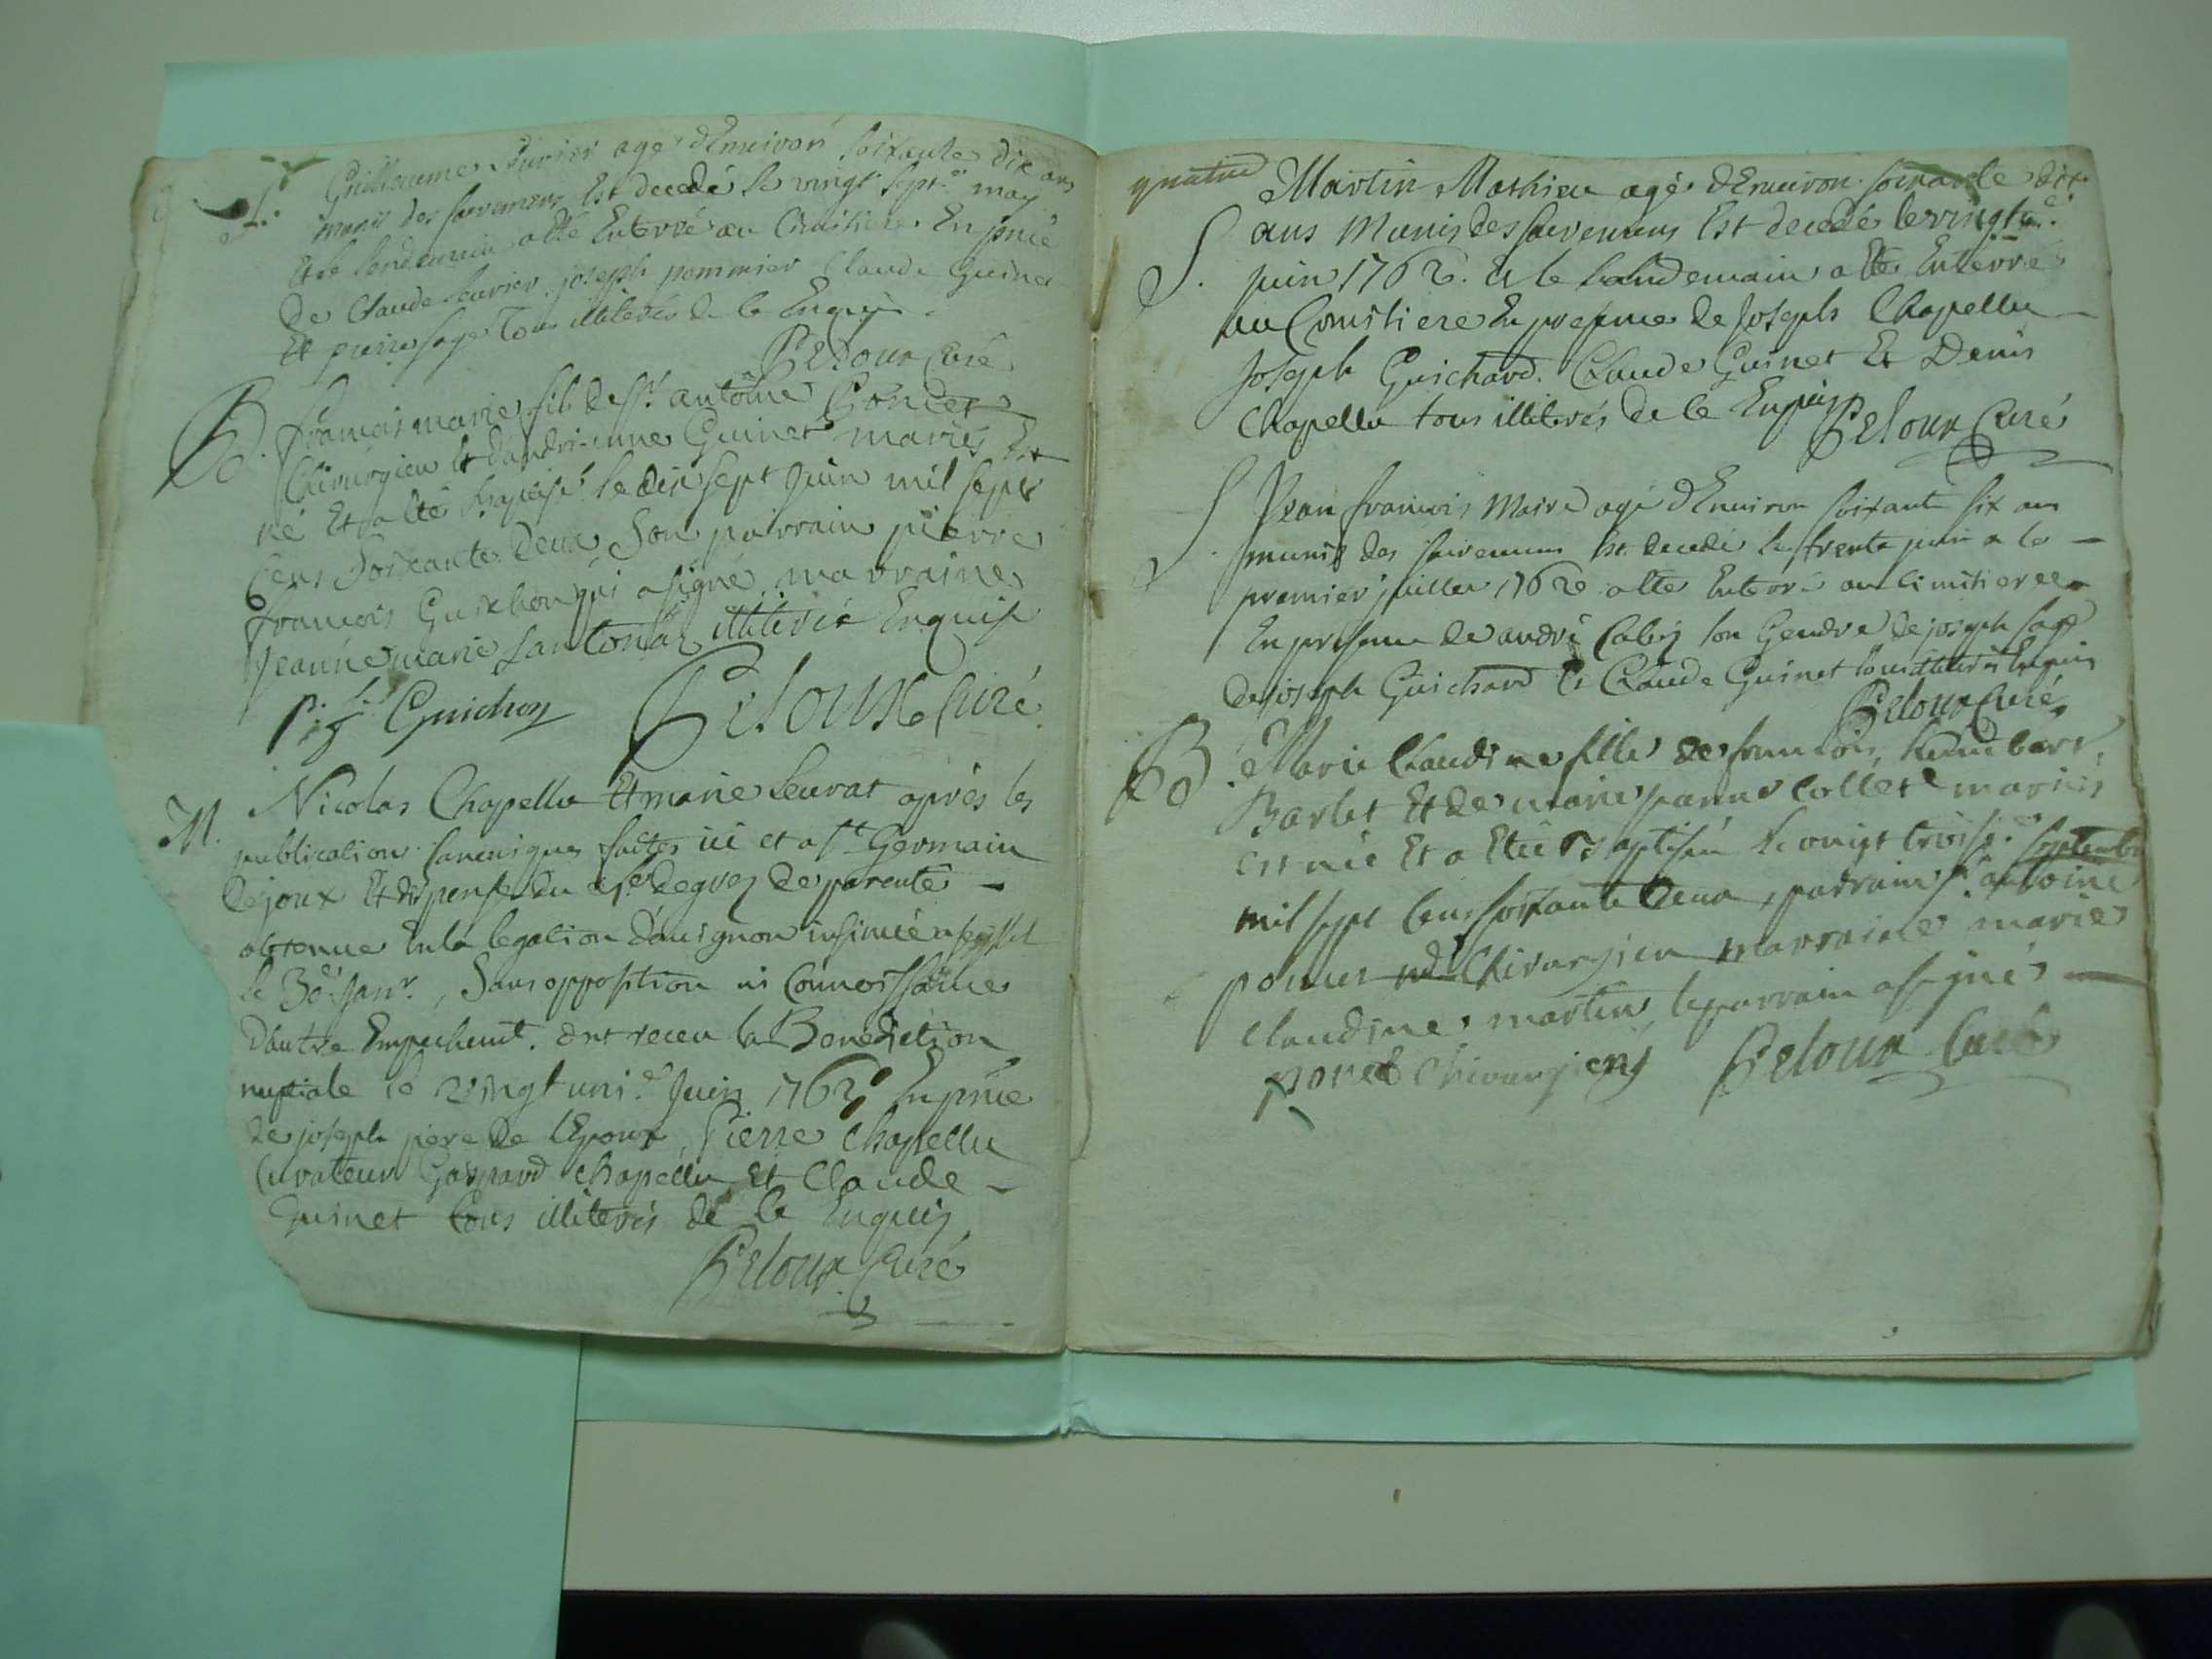 S. Guillaume agé d'Environ soixante dix ans
munis des sacremens Est decedé le vingt sept.e may
Et le lendemain a Eté Enterré au Cimitiere En pnce
de Claude joseph pommier Claude Guinet
Et pierre sage Tous illiterés de ce Enquis
Beloux Curé
B. françois marie fils de Sr. antoine Poncet
Chirurgien Et d'andrienne Guinet mariés Est
né Et a Eté Baptisé le dix sept Juin mil sept
Cens Soixante Deux Son parrain pierre
françois Guichon qui a signé marraine
jeanne marie illiterée Enquise
Guichon Beloux Curé
M. Nicolas Chapellu Et marie Seurat après les
publications canoniques faites ici et a St. Germain
de joux Et dispense du degrez de parenté
obtenue En la legation d'avignon
le 30.e Janr., Sans opposition ni Connoissance
d'autre Empechemt. ont receu la Benediction
nuptiale le vingt uni.e Juin 1762 En pnce
de joseph pere de l'Epoux, Pierre Chapellu
Curateur Gaspard Chapellu Et Claude
Guinet tous illiterés de ce Enquis
Beloux Curé
quatre
S. Martin Mathieu agé d'Environ soixante dix
ans Munis des sacremens Est decedé le
juin 1762. Et le landemain a Eté Enterré
au Cimitiere En presence de Joseph Chapellu
Joseph Guichard. Claude Guinet Et Denis
Chapellu tous illiterés de ce Enquis
Beloux Curé
S. Jean françois Maire agé d'Environ soixante six ans
munis des sacremens Est decedé le trente juin a le
premier juillet 1762 a Eté Enterré au Cimitiere
En presence de andré son Gendre de joseph sage
de joseph Guichard Et Claude Guinet tous illiterés Enquis
Beloux Curé
B. Marie Claudine fille de
Barlet Et de marie jeanne Collet mariés
est née Et a Etée Baptisée le vingt troisi.e septembre
mil sept Cens soixante Deux, parrain Sr. antoine
poncet Chirurgien marraine marie
Claudine martin, le parrain a signé
ponet Chirurgien Beloux Curé